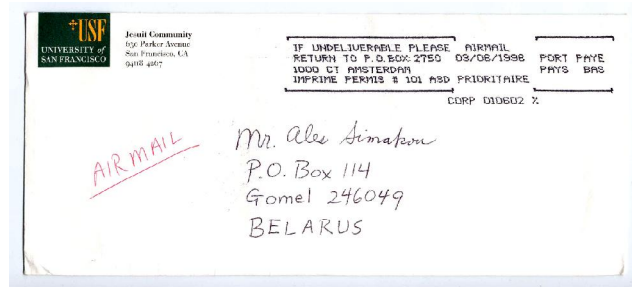 USF
UNIVERSITY of
SAN FRANCISCO
Jesuit Community
650 Parker Avenue
San Francisco, CA
94118 4267
IF UNDELIVERABLE PLEASE AIRMAIL
RETURN TO P.O.BOX 2750 03/06/1998 PORT PAYE
1000 CT AMSTERDAM PAYS BAS
IMPRIME PERMIS # 101 ASD PRIORITAIRE
CORP 010602 %
AIRMAIL
Mr. Alex Simakou
P.O. Box 114
Gomel 246049
BELARUS